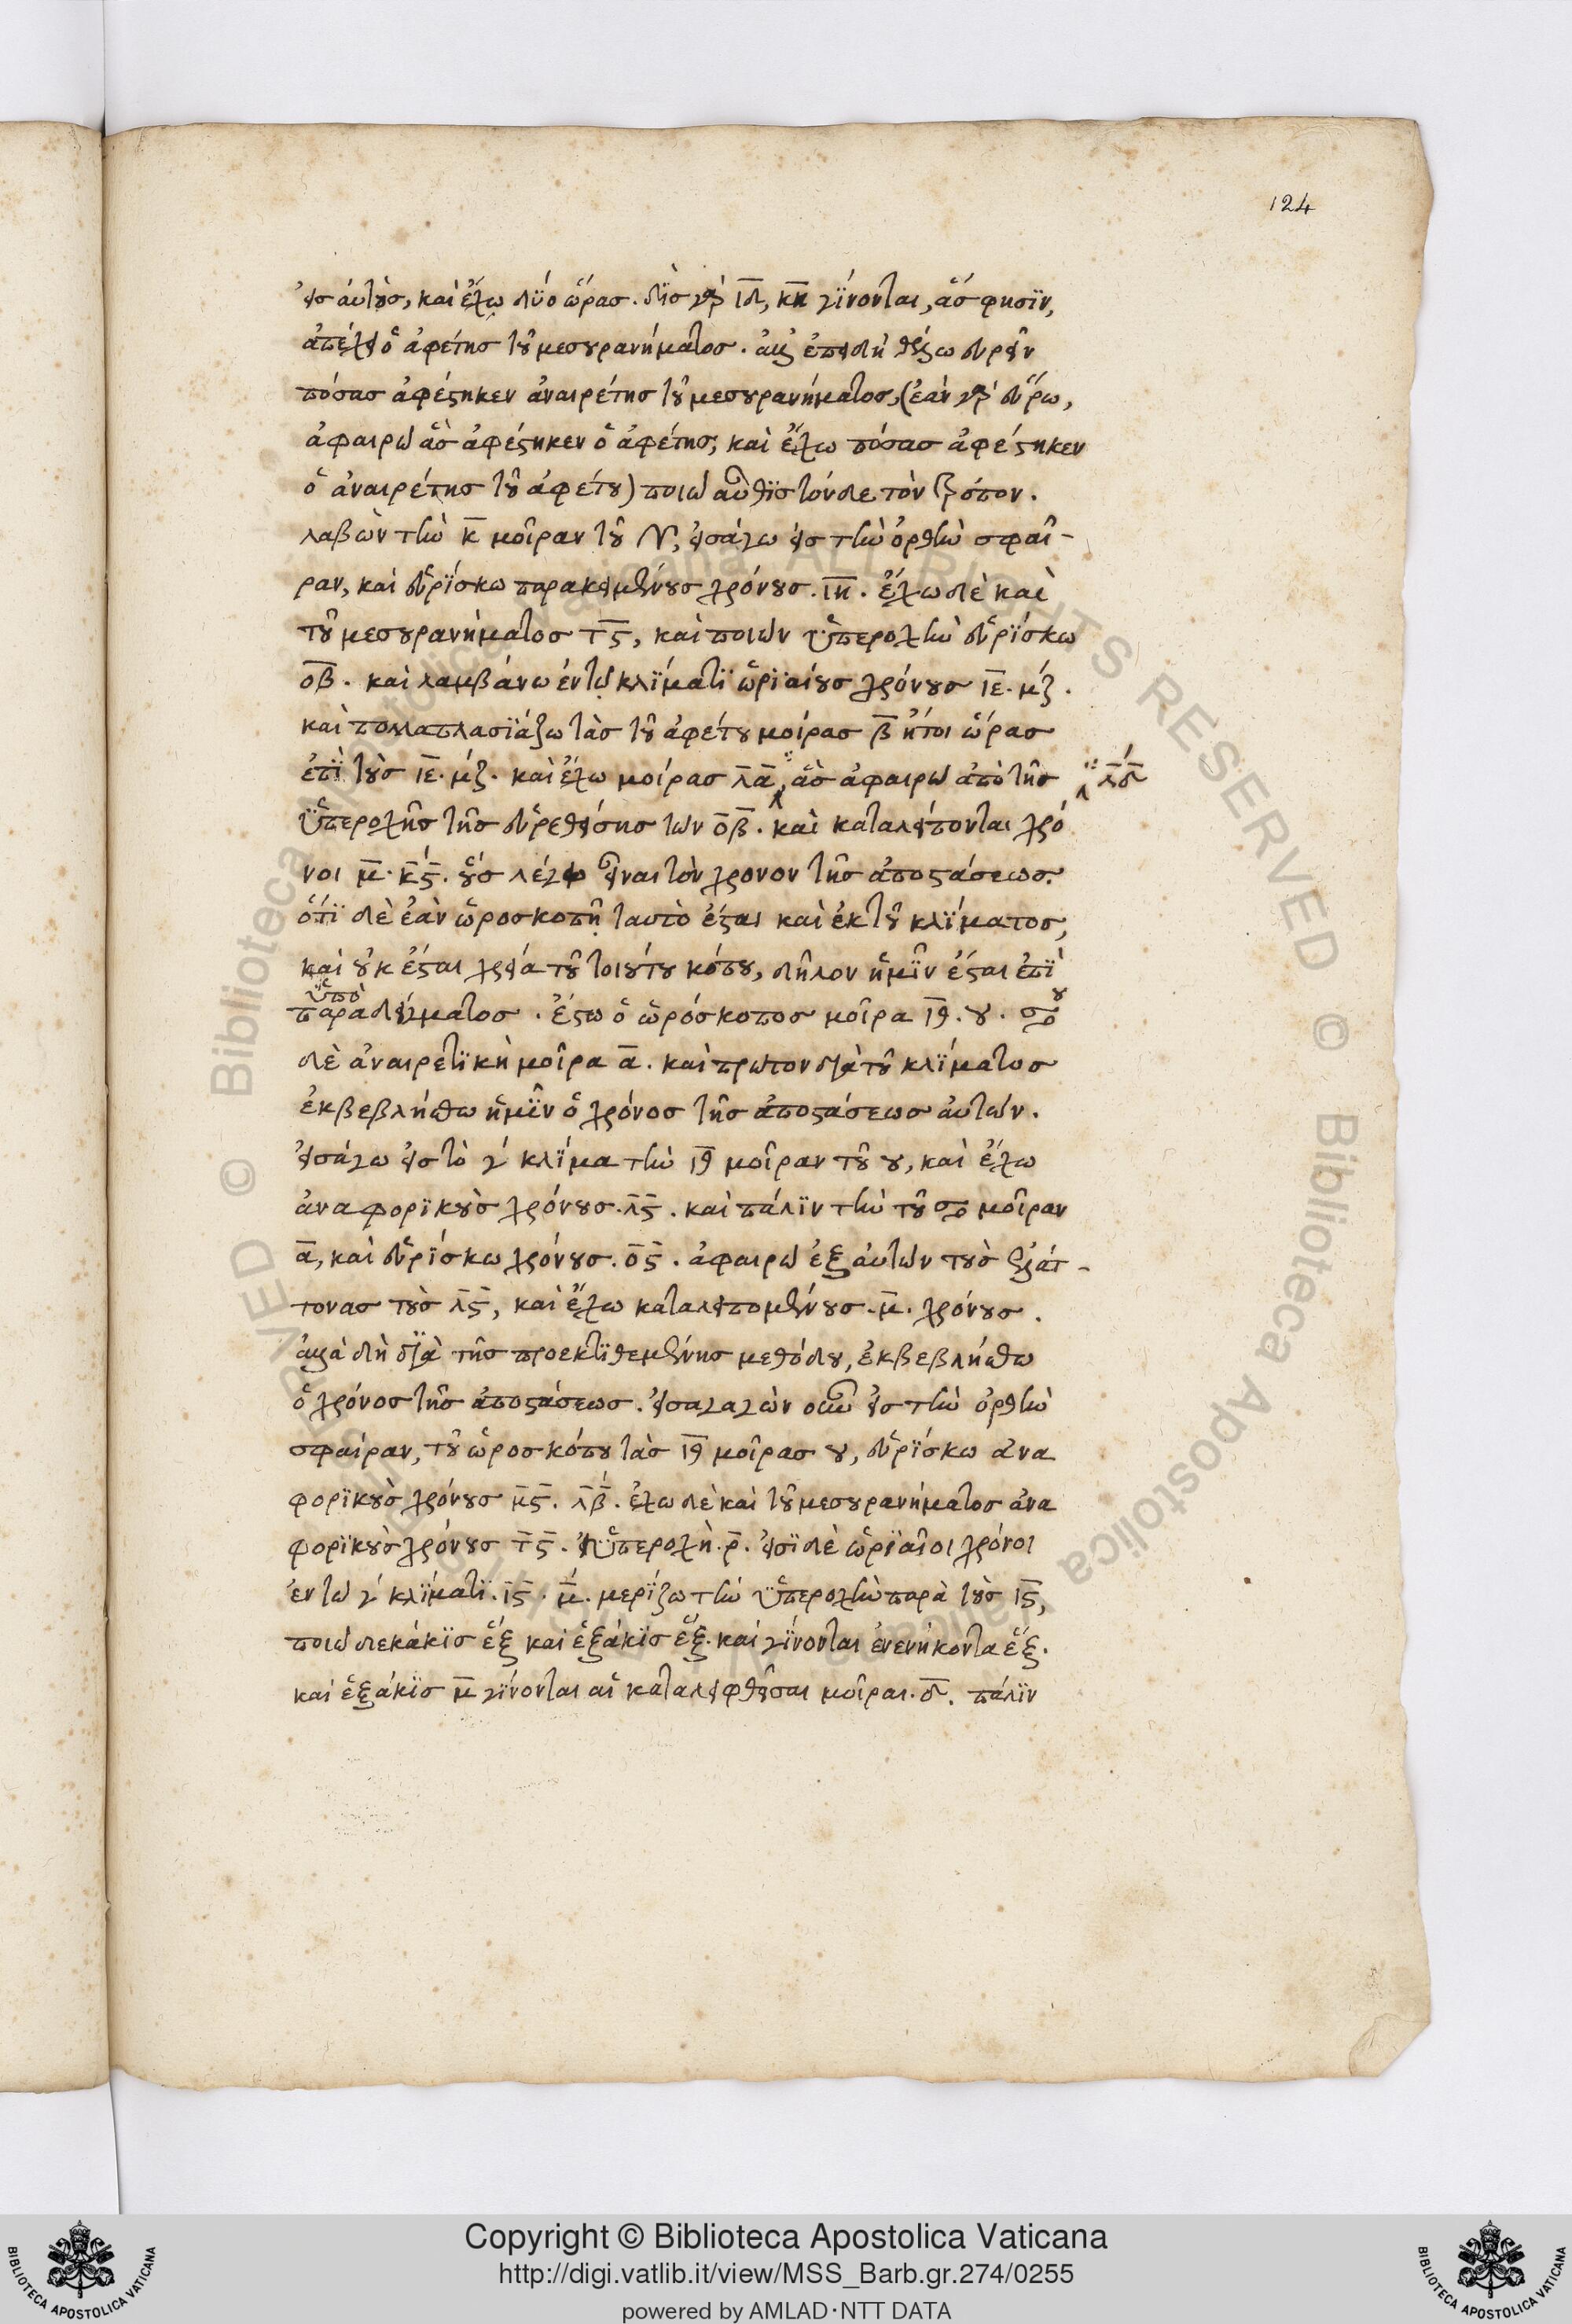 124
εἰς αὐτοὺς, καὶ ἔχω δύο ὥρας. δὶς γὰρ ιδ, κη γίνονται, ἃς φησὶν,
ἀπέχει ὁ ἀφέτης τοῦ μεσουρανήματος. ἀλλ' ἐπειδὴ θέλω εὑρεῖν
πόσας ἀφέστηκεν ἀναιρέτης τοῦ μεσουρανήματος, (ἐὰν γὰρ εὕρω,
ἀφαιρῶ ἃς ἀφέστηκεν ὁ ἀφέτης, καὶ ἔχω πόσας ἀφέστηκεν
ὁ ἀναιρέτης τοῦ ἀφέτου) ποιῶ αὖθις τόνδε τὸν τρόπον.
λαβὼν τὴν κ μοῖραν τοῦ ♈, εἰσάγω εἰς τὴν ὀρθὴν σφαῖ-
ραν, καὶ εὑρίσκω παρακειμένους χρόνους. ιη. ἔχω δὲ καὶ
τοῦ μεσουρανήματος τς, καὶ ποιῶν ὑπεροχὴν εὑρίσκω
οβ. καὶ λαμβάνω ἐν τῷ κλίματι ὡριαίους χρόνους ιε. μζ.
καὶ πολλαπλασιάζω τὰς τοῦ ἀφέτου μοίρας β ἤτοι ὥρας
ἐπὶ τοὺς ιε. μζ. καὶ ἔχω μοίρας λα, ἃς ἀφαιρῶ ἀπὸ τῆς
λδ
ὑπεροχῆς τῆς εὑρεθείσης τῶν οβ. καὶ καταλείπονται χρό
νοι μ. κς. οὓς λέγει εἶναι τὸν χρονον τῆς ἀποστάσεως.
ὅτι δὲ ἐὰν ὡροσκοπῇ ταυτὸ ἔσται καὶ ἐκ τοῦ κλίματος,
καὶ οὐκ ἔσται χρεία τοῦ τοιούτου κόπου, δῆλον ἡμῖν ἔσται ἐπὶ
ὑπο
παραδείγματος. ἔστω ὁ ὡρόσκοπος μοῖρα ιθ. ♉. ♋ου
δὲ ἀναιρετικὴ μοῖρα α. καὶ πρῶτον διὰ τοῦ κλίματος
ἐκβεβλήσθω ἡμῖν ὁ χρόνος τῆς ἀποστάσεως αὐτῶν.
εἰσάγω εἰς τὸ γ κλίμα τὴν ιθ μοῖραν τοῦ ♉, καὶ ἔχω
ἀναφορικοὺς χρόνους. λς. καὶ πάλιν τὴν τοῦ ♋ μοῖραν
α, καὶ εὑρίσκω χρόνους. ος. ἀφαιρῶ ἐξ αὐτῶν τοὺς ἐλάτ-
τονας τοὺς λς, καὶ ἔχω καταλειπομένους. μ. χρόνους.
ἀλλὰ δὴ διὰ τῆς προεκτιθεμένης μεθόδου, ἐκβεβλήσθω
ὁ χρόνος τῆς ἀποστάσεως. εἰσαγαγὼν οὖν εἰς τὴν ὀρθὴν
σφαίραν, τοῦ ὡροσκόπου τὰς ιθ μοίρας ♉, εὑρίσκω ἀνα
φορικοὺς χρόνους μς. λβ. ἔχω δὲ καὶ τοῦ μεσουρανήματος ἀνα
φορικοὺς χρόνους τς. ἡ ὑπεροχὴ. ρ. εἰσὶ δὲ ὡριαῖοι χρόνοι
ἐν τῷ γ κλίματι. ις. μ. μερίζω τὴν ὑπεροχὴν παρὰ τοὺς ις,
ποιῶ δεκάκις ἓξ καὶ ἑξάκις ἓξ. καὶ γίνονται ἐνενήκοντα ἓξ.
καὶ ἑξάκις μ γίνονται αἱ καταλειφθεῖσαι μοῖραι. δ. πάλιν
Copyright © Biblioteca Apostolica Vaticana
http://digi.vatlib.it/view/MSS_Barb.gr.274/0255
powered by AMLAD·NTT DATA